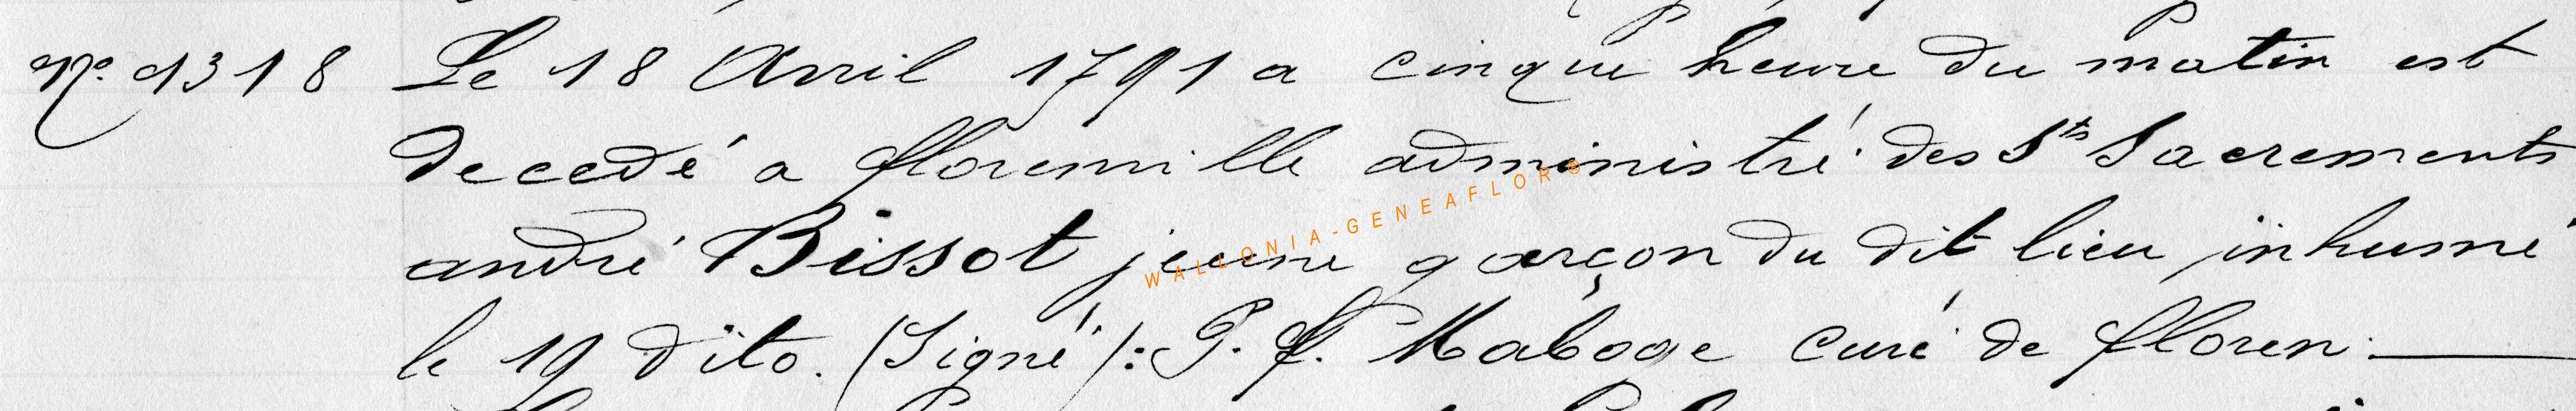 N° 1318 Le 18 Avril 1791 a cinque heure du matin est
decedé a florenville administré des Sts Sacrements
andré Bissot jeune garçon du dit lieu inhumé
le 19 dito. (Signé): P. f. Maboge curé de floren.
WALLONIA-GENEAFLOR©